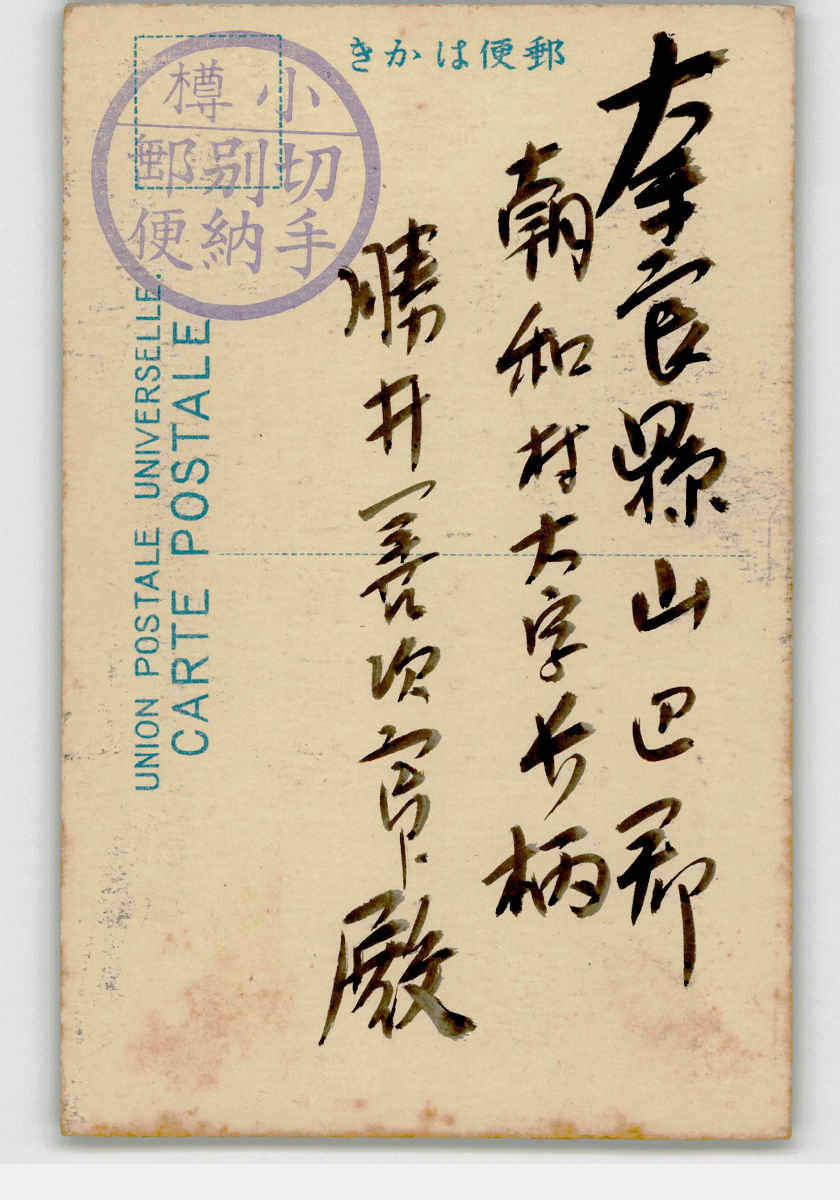 郵便はかき
奈良縣山辺郡
朝和村大字長柄
勝井善次郎殿
小樽
切手
別納
郵便
UNION POSTALE UNIVERSELLE.
CARTE POSTALE